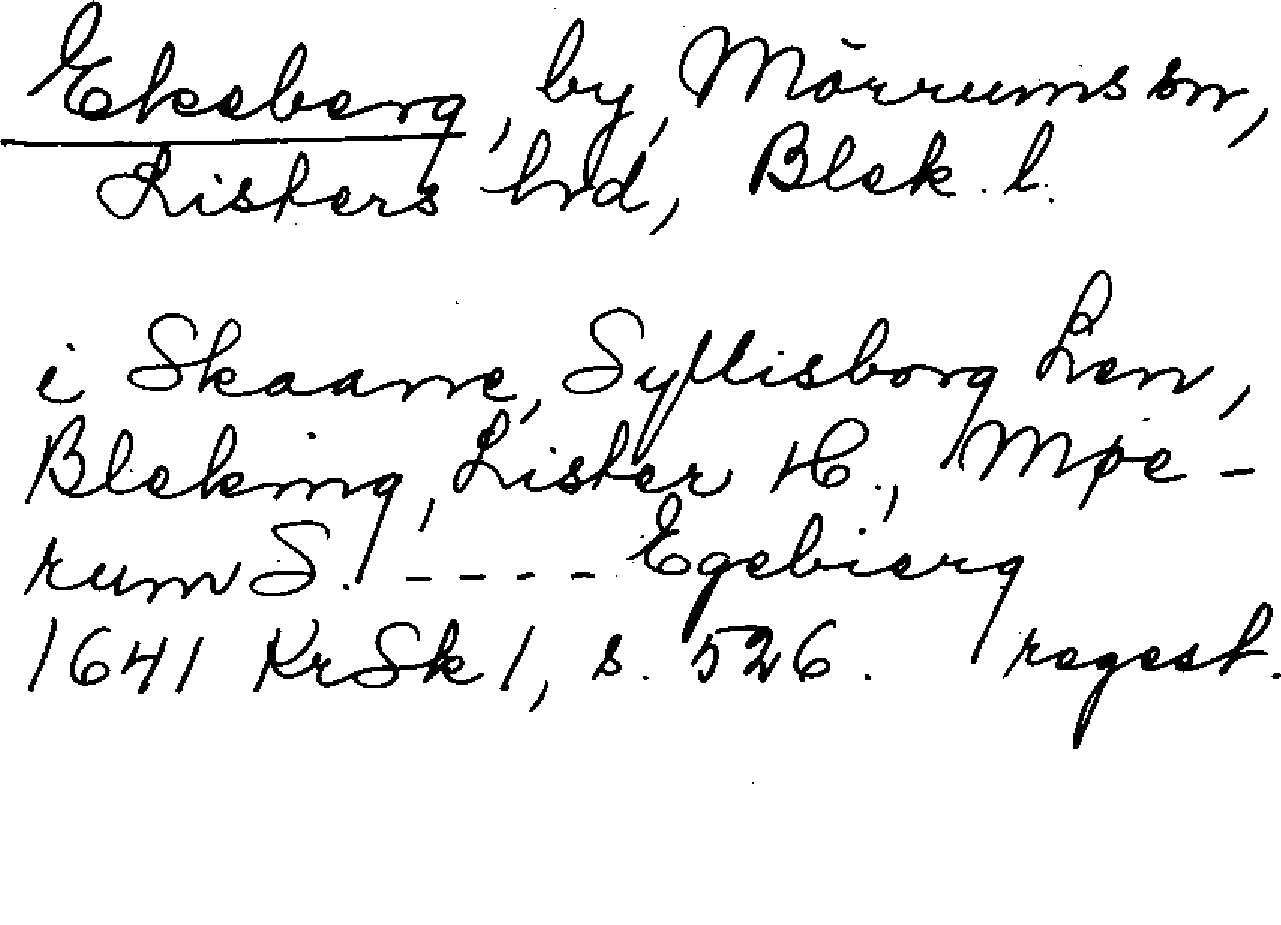 Ekeberg, by, Mörrums sn,
Listers hd, Blek. l.
i Skaane, Sylllisborg Len,
Bleking, Lister H., Møe-
rum S. ---- Egebierg
1641 KrSk 1, s. 526. regest.